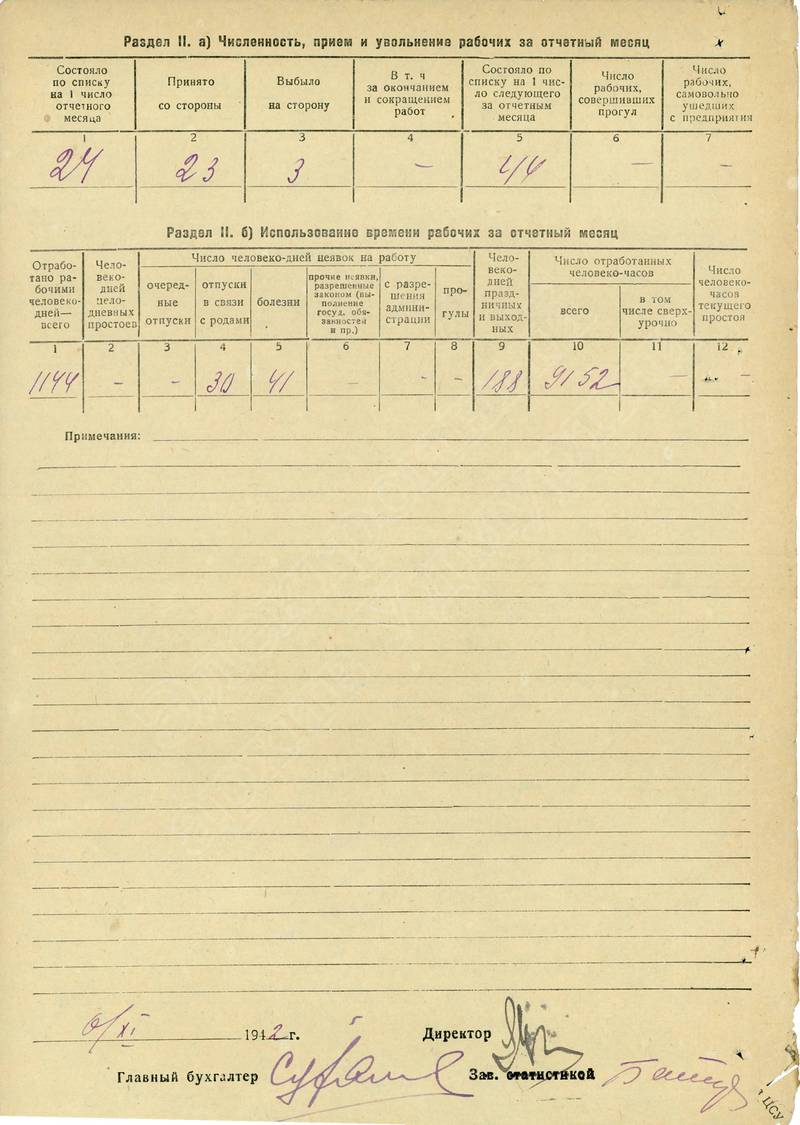 Раздел II. а) Численность, прием и увольнение рабочих за отчетный месяц
Состояло по списку на 1 число отчетного месяца
Принято со стороны
Выбыло на сторону
В т. ч за окончанием и сокращением работ
Состояло по списку на 1 число следующего за отчетным месяца
Число рабочих, совершивших прогул
Число рабочих, самовольно ушедших с предприятия
1 2 3 4 5 6 7
24 23 3 — 44 — —
Раздел II. б) Использование времени рабочих за отчетный месяц
Отработано рабочими человеко-дней—всего
Человеко-дней целодневных простоев
Число человеко-дней неявок на работу
очередные отпуски
отпуски в связи с родами
болезни
прочие неявки, разрешенные законом (выполнение госуд. обязанностей и пр.)
с разрешения администрации
прогулы
Человеко-дней праздничных и выходных
Число отработанных человеко-часов
всего
в том числе сверхурочно
Число человеко-часов текущего простоя
1 2 3 4 5 6 7 8 9 10 11 12
1144 — — 30 41 — — — 188 9152 — —
Примечания:
6/XI 1942 г. Директор
Главный бухгалтер Зав. статистикой
ЦСУ